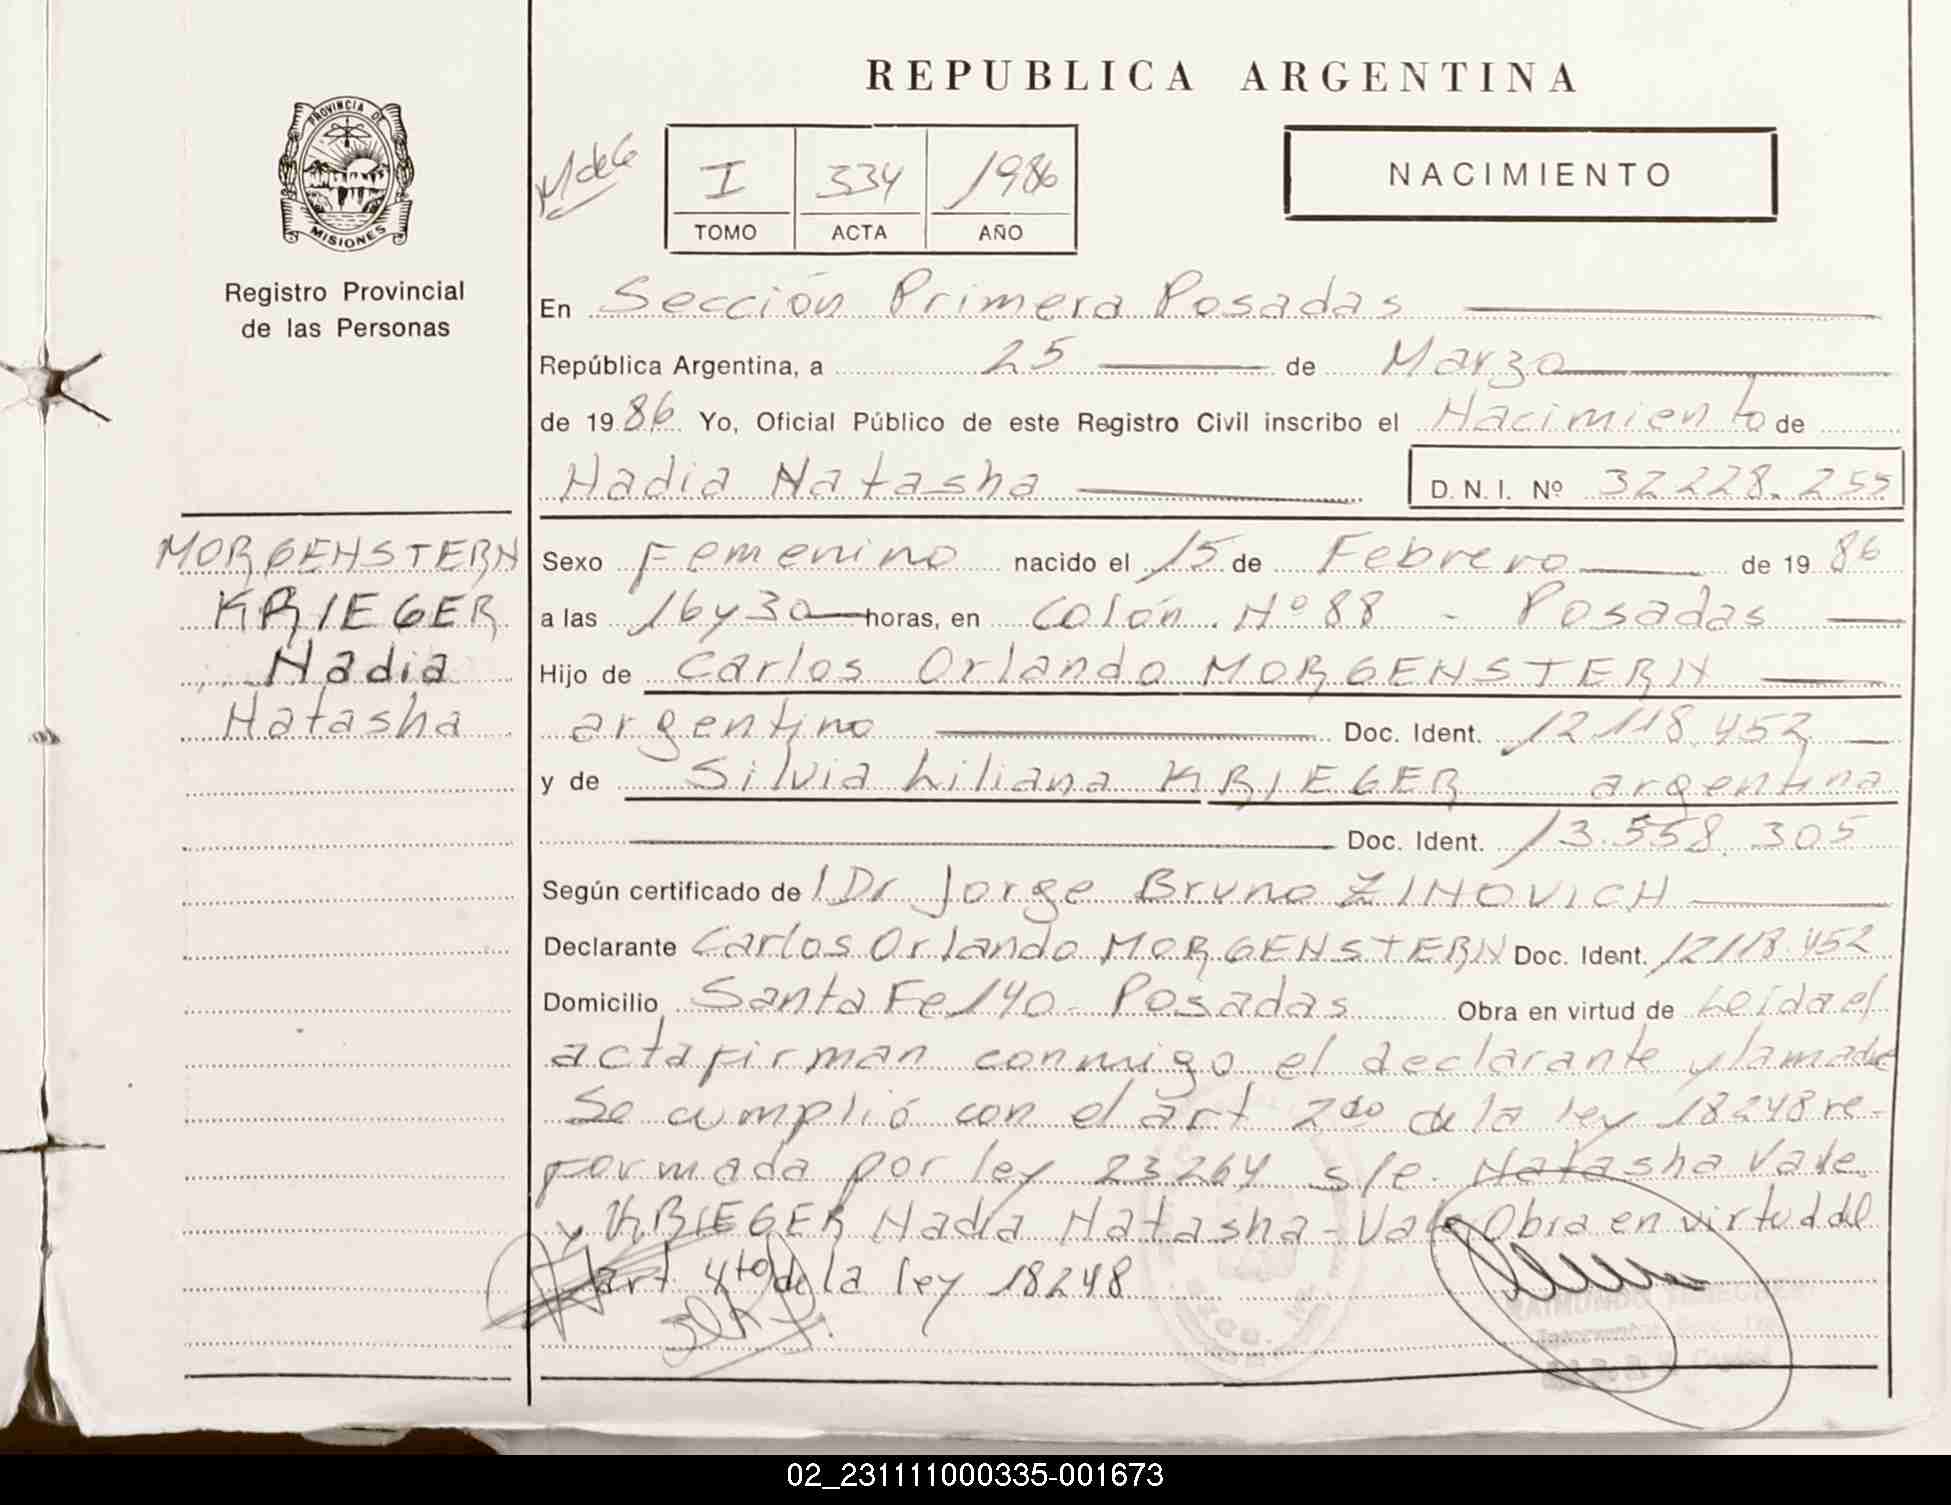 REPUBLICA ARGENTINA
PROVINCIA DE
MISIONES
Registro Provincial
de las Personas
M de G
I 334 1986
TOMO ACTA AÑO
NACIMIENTO
En Sección Primera Posadas
República Argentina, a 25 de Marzo
de 19 86 Yo, Oficial Público de este Registro Civil inscribo el Nacimiento de
Nadia Natasha D.N.I. Nº 32.228.255
MORGENSTERN
KRIEGER
Nadia
Natasha
Sexo Femenino nacido el 15 de Febrero de 19 86
a las 16 y 30 horas, en Colón Nº 88 - Posadas
Hijo de Carlos Orlando MORGENSTERN
argentino Doc. Ident. 12.118.452
y de Silvia Liliana KRIEGER argentina
Doc. Ident. 13.558.305
Según certificado de l Dr Jorge Bruno ZINOVICH
Declarante Carlos Orlando MORGENSTERN Doc. Ident. 12.118.452
Domicilio Santa Fe 140 - Posadas Obra en virtud de Leída el
acta firman conmigo el declarante y la madre
Se cumplió con el art 2do de la ley 18248 re-
formada por ley 23264 s/e. Natasha Vale.
y KRIEGER Nadia Natasha - Vale Obra en virtud del
art. 4to de la ley 18248
RAIMUNDO
02_231111000335-001673